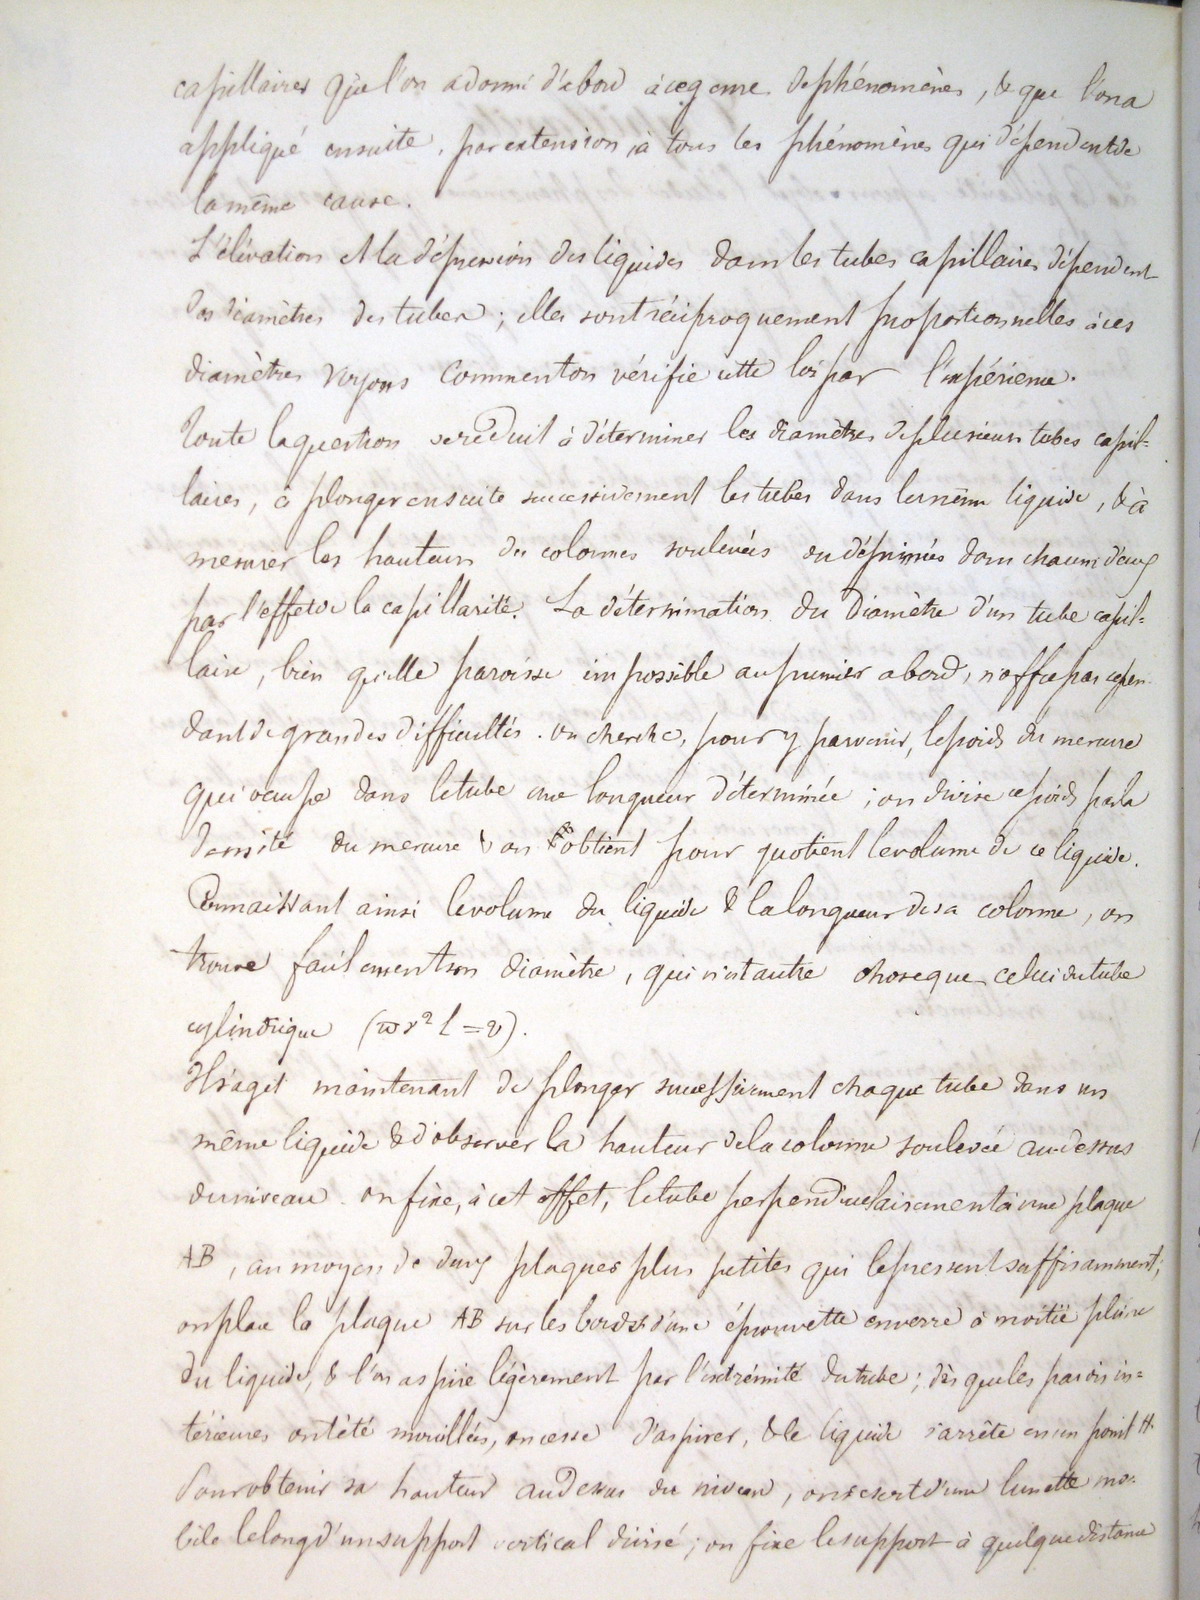 capillaires que l'on a donné d'abord à ce genre de phénomènes, & que l'on a
appliqué ensuite, par extension, à tous les phénomènes qui dépendent de
la même cause.
L'élévation et la dépression des liquides dans les tubes capillaires dépendent
des diamètres des tubes ; elles sont réciproquement proportionnelles à ces
diamètres voyons comment on vérifie cette loi par l'expérience.
Toute la question se réduit à déterminer les diamètres de plusieurs tubes capil=
laires, à plonger ensuite successivement les tubes dans le même liquide, & à
mesurer les hauteurs des colonnes soulevées ou déprimées dans chacun d'eux
par l'effet de la capillarité. La détermination du diamètre d'un tube capil=
laire, bien qu'elle paroisse impossible au premier abord, n'offre pas cepen
dant de grandes difficultés. on cherche, pour y parvenir, le poids du mercure
qui occupe dans le tube une longueur déterminée ; on divise ce poids par la
densité du mercure & on obtient pour quotient le volume de ce liquide.
Connaissant ainsi le volume du liquide & la longueur de sa colonne, on
trouve facilement son diamètre, qui n'est autre chose que celui du tube
cylindrique (ϖr² l = v).
Il s'agit maintenant de plonger successivement chaque tube dans un
même liquide & d'observer la hauteur de la colonne soulevée au dessus
du niveau. on fixe, à cet effet, le tube perpendiculairement à une plaque
AB, au moyen de deux plaques plus petites qui le pressent suffisamment ;
on place la plaque AB sur les bords d'une éprouvette en verre à moitié pleine
du liquide, & l'on aspire légèrement par l'extrémité du tube ; dès que les parois in=
térieures ont été mouillées, on cesse d'aspirer, & le liquide s'arrête en un point H.
Pour obtenir sa hauteur au dessus du niveau, on se sert d'une lunette mo=
bile le long d'un support vertical divisé ; on fixe le support à quelque distance